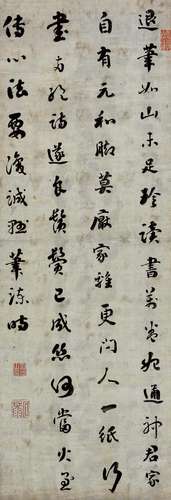 退筆如山未足珍讀書萬卷始通神君家
自有元和脚莫厭家雞更問人一紙行
書兩絕詩遂良鬚鬢已成絲何當火急
傳心法要復誠懸筆諫時